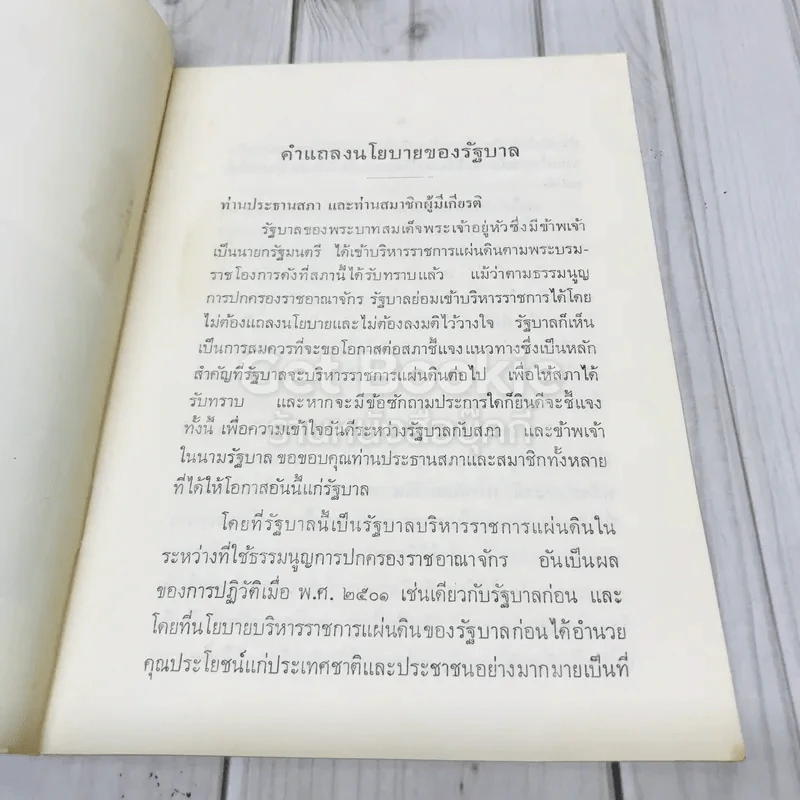 คำแถลงนโยบายของรัฐบาล
ท่านประธานสภา และท่านสมาชิกผู้มีเกียรติ
รัฐบาลของพระบาทสมเด็จพระเจ้าอยู่หัวซึ่งมีข้าพเจ้า
เป็นนายกรัฐมนตรี ได้เข้าบริหารราชการแผ่นดินตามพระบรม-
ราชโองการดังที่สภานี้ได้รับทราบแล้ว แม้ว่าตามธรรมนูญ
การปกครองราชอาณาจักร รัฐบาลย่อมเข้าบริหารราชการได้โดย
ไม่ต้องแถลงนโยบายและไม่ต้องลงมติไว้วางใจ รัฐบาลก็เห็น
เป็นการสมควรที่จะขอโอกาสต่อสภาชี้แจงแนวทางซึ่งเป็นหลัก
สำคัญที่รัฐบาลจะบริหารราชการแผ่นดินต่อไป เพื่อให้สภาได้
รับทราบ และหากจะมีข้อซักถามประการใดก็ยินดีจะชี้แจง
ทั้งนี้ เพื่อความเข้าใจอันดีระหว่างรัฐบาลกับสภา และข้าพเจ้า
ในนามรัฐบาล ขอขอบคุณท่านประธานสภาและสมาชิกทั้งหลาย
ที่ได้ให้โอกาสอันนี้แก่รัฐบาล
โดยที่รัฐบาลนี้เป็นรัฐบาลบริหารราชการแผ่นดินใน
ระหว่างที่ใช้ธรรมนูญการปกครองราชอาณาจักร อันเป็นผล
ของการปฏิวัติเมื่อ พ.ศ. ๒๕๐๑ เช่นเดียวกับรัฐบาลก่อน และ
โดยที่นโยบายบริหารราชการแผ่นดินของรัฐบาลก่อนได้อำนวย
คุณประโยชน์แก่ประเทศชาติและประชาชนอย่างมากมายเป็นที่